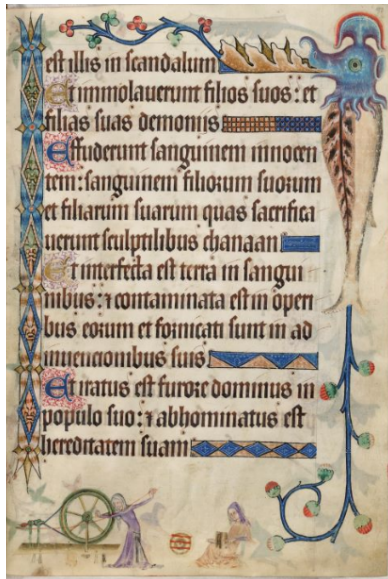 est illis in scandalum
Et immolauerunt filios suos : et
filias suas demoniis
Effuderunt sanguinem innocen
tem : sanguinem filiorum suorum
et filiarum suarum quas sacrifica
uerunt sculptilibus chanaan
Et interfecta est terra in sangui
nibus : ⁊ contaminata est in operi
bus eorum et fornicati sunt in ad
inuencionibus suis
Et iratus est furore dominus in
populo suo : ⁊ abhominatus est
hereditatem suam